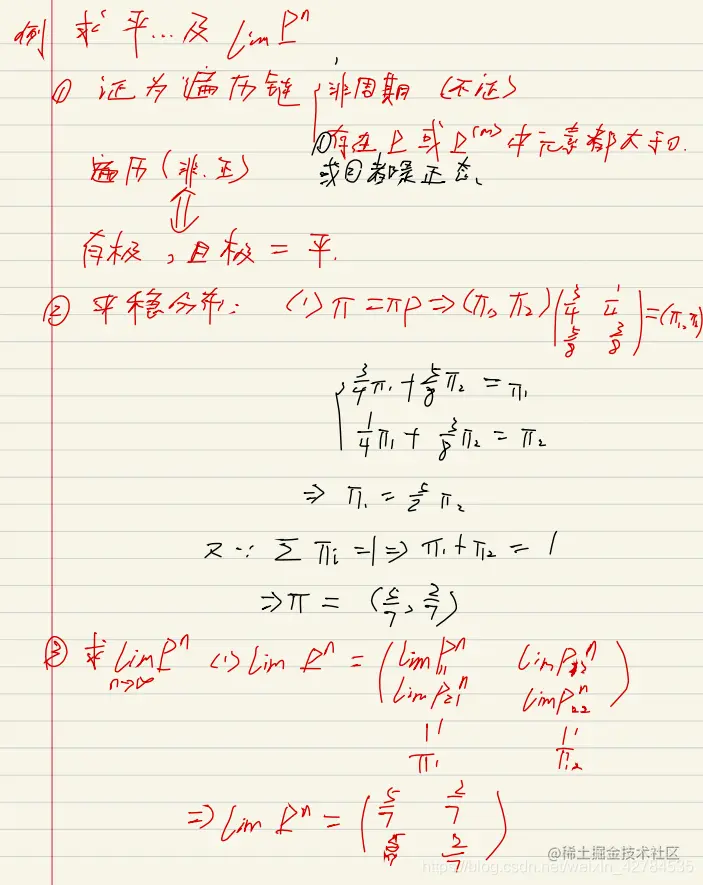 例 求平...及 lim Pⁿ
① 证为遍历链 { 非周期 (不证)
①存在 P 或 P⁽ᵐ⁾ 中元素都大于0.
遍历(非.正) 或②都是正态、
⇕
有极,且极=平.
② 平稳分布: (1) π=πP ⇒ (π₁, π₂) (3/4 1/4
5/8 3/8) = (π₁,π₂)
{ 3/4 π₁ + 5/8 π₂ = π₁
1/4 π₁ + 3/8 π₂ = π₂
⇒ π₁ = 5/2 π₂
又∵ ∑ πi =1 ⇒ π₁+π₂ = 1
⇒π = (5/7, 2/7)
③ 求 lim Pⁿ (1) lim Pⁿ = (lim P₁₁ⁿ lim P₁₂ⁿ
n→∞ lim P₂₁ⁿ lim P₂₂ⁿ)
|| ||
π₁ π₂
⇒ lim Pⁿ = (5/7 2/7
5/7 2/7)
@稀土掘金技术社区
https://blog.csdn.net/weixin_42784535